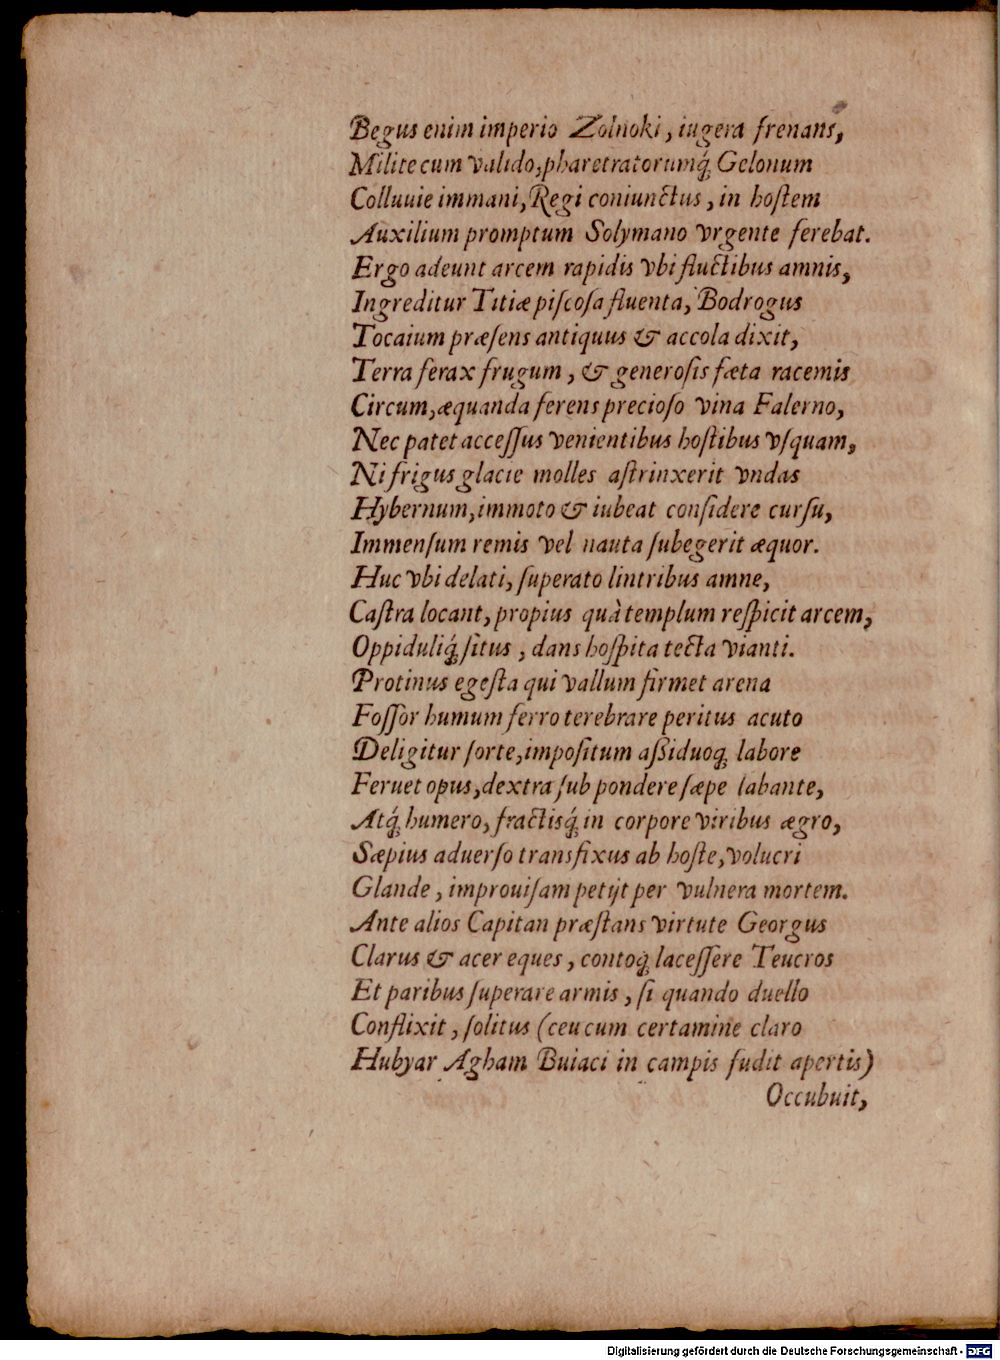 Begus enim imperio Zolnoki, iugera frenans,
Milite cum valido, pharetratorumq́; Gelonum
Colluuie immani, Regi coniunctus, in hoſtem
Auxilium promptum Solymano vrgente ferebat.
Ergo adeunt arcem rapidis vbi fluctibus amnis,
Ingreditur Titiæ piſcoſa fluenta, Bodrogus
Tocaium præſens antiquus & accola dixit,
Terra ferax frugum, & generoſis fæta racemis
Circum, æquanda ferens precioſo vina Falerno,
Nec patet acceſſus venientibus hoſtibus vſquam,
Ni frigus glacie molles aſtrinxerit vndas
Hybernum, immoto & iubeat conſidere curſu,
Immenſum remis vel nauta ſubegerit æquor.
Huc vbi delati, ſuperato lintribus amne,
Caſtra locant, propius quà templum reſpicit arcem,
Oppiduliq́; ſitus, dans hoſpita tecta vianti.
Protinus egeſta qui vallum firmet arena
Foſſor humum ferro terebrare peritus acuto
Deligitur ſorte, impoſitum aßiduoq; labore
Feruet opus, dextra ſub pondere ſæpe labante,
Atq́; humero, fractisq́; in corpore viribus ægro,
Sæpius aduerſo transfixus ab hoſte, volucri
Glande, improuiſam petijt per vulnera mortem.
Ante alios Capitan præſtans virtute Georgus
Clarus & acer eques, contoq; laceſſere Teucros
Et paribus ſuperare armis, ſi quando duello
Conflixit, ſolitus (ceu cum certamine claro
Hubyar Agham Buiaci in campis fudit apertis)
Occubuit,
Digitalisierung gefördert durch die Deutsche Forschungsgemeinschaft - DFG